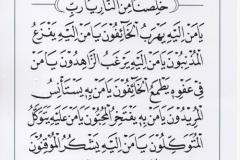 خَلِّصْنَا مِنَ النَّارِ يَا رَبِّ
يَا مَنْ اِلَيْهِ يَهْرَبُ الْخَآئِفُونَ يَا مَنْ اِلَيْهِ يَفْزَعُ
الْمُذْنِبُونَ يَا مَنْ اِلَيْهِ يَرْغَبُ الزَّاهِدُونَ يَا مَنْ
فِى عَفْوِهِ يَطْمَعُ الْخَآئِفُونَ يَا مَنْ بِهِ يَسْتَأْنِسُ
الْمُرِيدُونَ يَا مَنْ بِهِ يَفْتَخِرُ الْمُحِبُّونَ يَا مَنْ عَلَيْهِ يَتَوَكَّلُ
الْمُتَوَكِّلُونَ يَا مَنْ اِلَيْهِ يَشْكُرُ الْمُوقِنُونَ